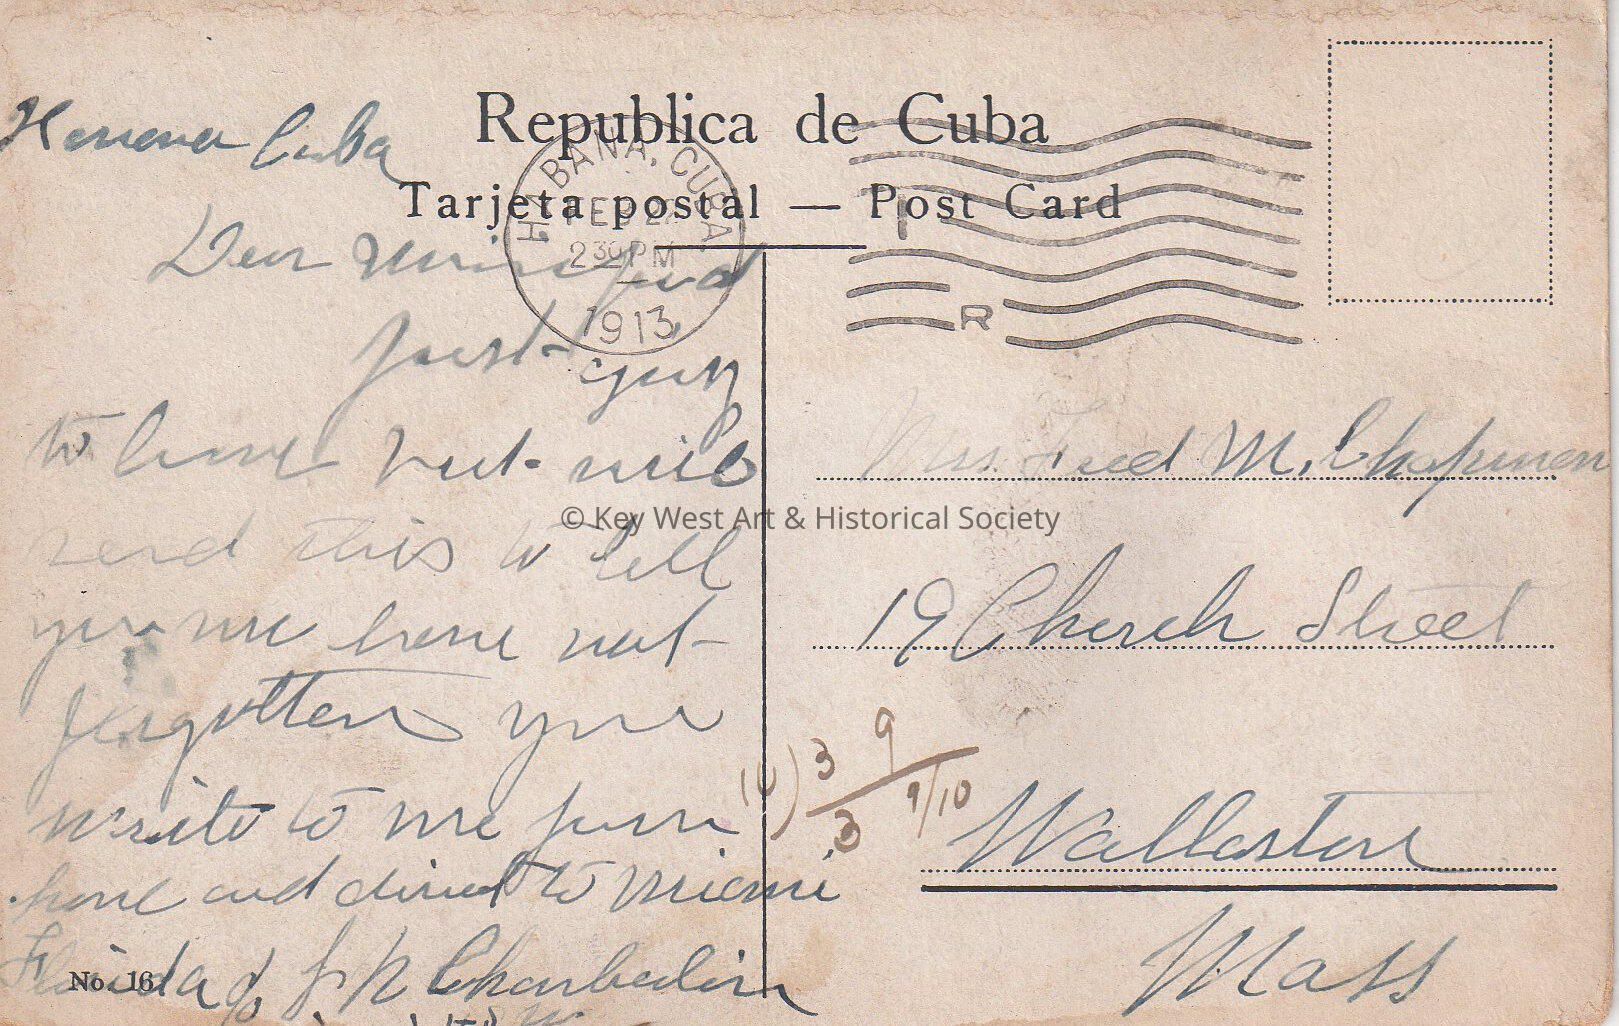 Republica de Cuba
Tarjeta postal — Post Card
HABANA, CUBA
FEB
230 PM
1913
R
Havana Cuba
Dear
just
to leave but will
send this to tell
you we have not
forgotten you
write to me
and direct to Miami
Florida c/o Chamberlin
No. 16
© Key West Art & Historical Society
Mrs. Fred M. Chapman
19 Church Street
Wallaston
Mass
3 9
3 9/10